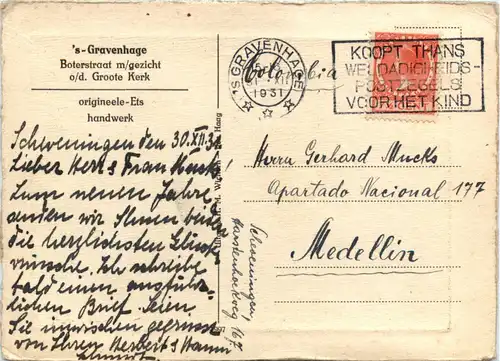 's-Gravenhage
Boterstraat m/gezicht
o/d. Groote Kerk
origineele-Ets
handwerk
's GRAVENHAGE
XII
1931
KOOPT THANS
WELDADIGHEIDS-
POSTZEGELS
VOOR HET KIND
Colombia
Scheveningen den 30.XII.31
Lieber Herr & Frau
Zum neuen Jahre
senden wir Ihnen beiden
die herzlichsten Glück
wünsche. Ich schreibe
bald einen ausführ-
lichen Brief. Seien
Sie inzwischen gegrüsst
von Ihren Herbert &
Herrn Gerhard Mucks
Apartado Nacional 177
Medellin
Scheveningen,
167
Haag